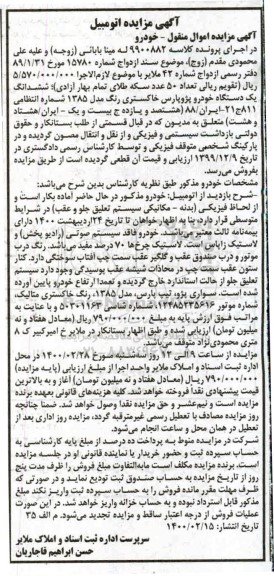 آگهی مزایده اتومبیل
آگهی مزایده اموال منقول - خودرو
در اجرای پرونده کلاسه ۹۹۰۰۸۸۲ له مینا بابائی (زوجه) و علیه علی
محمودی مقدم (زوج)، موضوع سند ازدواج شماره ۱۵۷۸۰ مورخ ۸۹/۱/۳۱
دفتر رسمی ازدواج شماره ۴۲ ملایر با موضوع لازم‌الاجرا ۵/۵۷۰/۰۰۰/۰۰۰
ریال (تقویم ریالی تعداد ۵۰ عدد سکه طلای تمام بهار آزادی): ششدانگ
یک دستگاه خودرو پژوپارس خاکستری رنگ مدل ۱۳۸۵ شماره انتظامی
۸۱۱ج۲۱-ایران/۸۸ (هشتصد و یازده ج بیست و یک - ایران/هشتاد
و هشت) متعلق به مدیون که در قبال قسمتی از طلب بستانکار و حقوق
دولتی بازداشت سیستمی و فیزیکی و از نقل و انتقال مصون گردیده و در
پارکینگ شخصی متوقف فیزیکی و توسط کارشناس رسمی دادگستری در
تاریخ ۱۳۹۹/۱۲/۹ ارزیابی و قیمت آن قطعی گردیده است از طریق مزایده
بفروش می‌رسد.
مشخصات خودرو مذکور طبق نظریه کارشناس بدین شرح می‌باشد:
-شرح بازدید از اتومبیل: خودرو مذکور در حال حاضر آماده بکار است و
از لحاظ فیزیکی (بدنه - مکانیکی سیستم تعلیق جلو و عقب) در شرایط
متوسطی قرار دارد، بنا به اظهار خواهان تا تاریخ ۲۴/اردیبهشت ۱۴۰۰ دارای
بیمه‌نامه ثالث معتبر می‌باشد. خودرو فاقد سیستم صوتی (رادیو پخش) و
لاستیک زاپاس است. لاستیک چرخ‌ها ۷۰ درصد مفید می‌باشد. رنگ درب
موتور و درب صندوق عقب و گلگیر عقب سمت چپ آفتاب سوختگی دارد. کنار
ستون عقب سمت چپ در محاذات شیشه عقب پوسیدگی وجود دارد سیستم
تعلیق جلو از حالت استاندارد خارج گردیده و تعمدا ارتفاع خودرو پایین آورده
شده است. سواری پژو، تیپ پارس، مدل ۱۳۸۵، رنگ خاکستری متالیک،
شماره موتور ۱۲۴۸۵۲۳۵۶۱۶، شماره شاسی ۵۰۳۰۱۱۶۳ و با عنایت به
مراتب فوق ارزش پایه به مبلغ ۷۹۰/۰۰۰/۰۰۰ ریال (معادل هفتاد و نه
میلیون تومان) ارزیابی شده و طبق اظهار بستانکار در ملایر خ امیرکبیر ک ۸
متری محمودی‌نژاد متوقف می‌باشد.
مزایده از ساعت ۹ الی ۱۲ روز سه‌شنبه مورخ ۱۴۰۰/۰۲/۲۸ در محل
اداره ثبت اسناد و املاک ملایر واحد اجرا از مبلغ ارزیابی (پایه مزایده)
۷۹۰/۰۰۰/۰۰۰ ریال (معادل هفتاد و نه میلیون تومان) آغاز و به بالاترین
قیمت پیشنهادی نقدا فروخته خواهد شد. کلیه هزینه‌های قانونی بعهده برنده
مزایده است و نیم‌عشر و حق مزایده نقدا وصول خواهد شد. ضمنا چنانچه
روز مزایده مصادف با تعطیل رسمی غیرمترقبه گردد، مزایده روز اداری بعد از
تعطیل در همان محل و ساعت انجام می‌شود.
شرکت در مزایده منوط به پرداخت ده درصد از مبلغ پایه کارشناسی به
حساب سپرده ثبت و حضور خریدار یا نماینده قانونی او در جلسه مزایده
است. برنده مزایده مکلف است مابه‌التفاوت مبلغ فروش را ظرف مدت پنج
روز از تاریخ مزایده به حساب صندوق ثبت تودیع نماید و در صورتی که
ظرف مهلت مقرر مانده فروش را به حساب سپرده ثبت واریز نکند مبلغ
مذکور قابل استرداد نبوده و به حساب خزانه واریز خواهد شد. در این صورت
عملیات فروش از درجه اعتبار ساقط و مزایده تجدید می‌شود. م الف ۳۵
تاریخ انتشار: ۱۴۰۰/۰۲/۱۵
سرپرست اداره ثبت اسناد و املاک ملایر
حسن ابراهیم قاجاریان